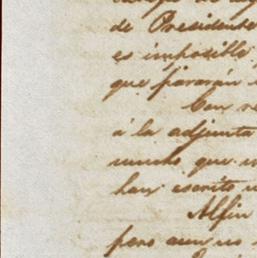 de Presidente
es imposible
que pararán
Con re
á la adjunta
mucho que
han escrito
Alfin
pero aun no